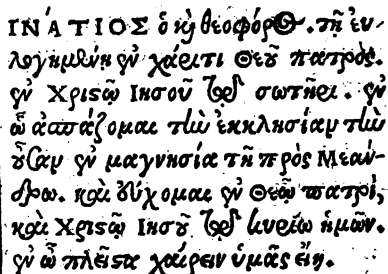 ΙΝΆΤΙΟΣ ὁ κỳ θεοφόρΘ. τῇ εὐ-
λογημένῃ ἐν χάριτι Θεοῦ πατρὸς.
ἐν Χριστῷ Ἰησοῦ τῷ σωτῆρι. ἐν
ᾧ ἀσπάζομαι τὴν ἐκκλησίαν τὴν
οὖσαν ἐν μαγνησίᾳ τῇ πρὸς Μεάν-
δρῳ. καὶ εὔχομαι ἐν Θεῷ πατρί,
καὶ Χριστῷ Ἰησοῦ τῷ κυρίῳ ἡμῶν.
ἐν ᾧ πλεῖστα χαίρειν ὑμᾶς εἴη.